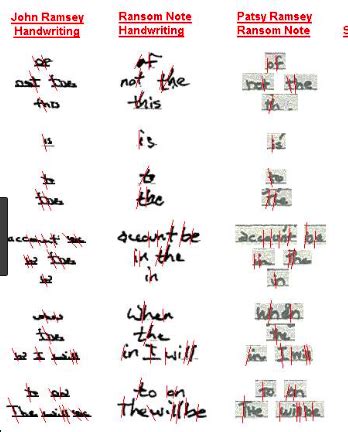 John Ramsey Handwriting
Ransom Note Handwriting
Patsy Ramsey Ransom Note
of of of
not the not the not the
this this th
is is is
to to to
the the the
account be account be account be
in the in the in the
in in in
when When when
the the the
in I will in I will in I will
to on to on to on
The will be The will be The will be